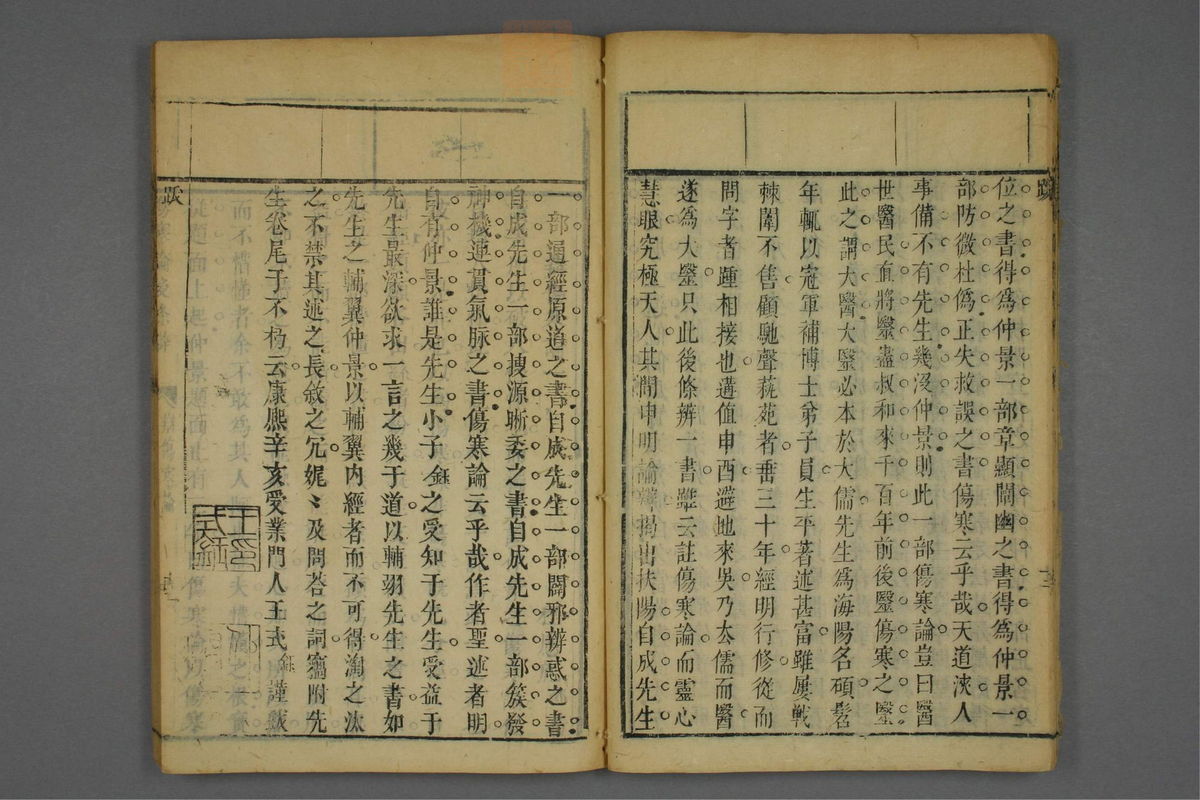 跋
位之書得爲仲景一部章顯闡幽之書得爲仲景一
部防微杜僞正失救誤之書傷寒云乎哉天道浹人
事備不有先生幾沒仲景則此一部傷寒論豈曰醫
世醫民直將毉盡叔和來千百年前後毉傷寒之毉
此之謂大醫大毉必本於大儒先生爲海陽名碩髫
年輒以冠軍補博士弟子員生平著述甚富雖屢戰
棘闈不售顧馳聲蓺苑者垂三十年經明行修從而
問字者踵相接也遘值申酉避地來吳乃太儒而醫
遂爲大毉只此後條辨一書雖云註傷寒論而靈心
慧眼究極天人其間申明論辯揭出扶陽自成先生
一部通經原道之書自成先生一部闢邪辨惑之書
自成先生一部搜源晰委之書自成先生一部簇發
神機連貫氣脉之書傷寒論云乎哉作者聖述者明
自有仲景誰是先生小子鈺之受知于先生受益于
先生最深欲求一言之幾于道以輔翊先生之書如
先生之輔翼仲景以輔翼内經者而不可得漘之汰
之不禁其述之長敘之冗娓〻及問荅之詞竊附先
生卷尾于不朽云康熈辛亥受業門人王式鈺謹䟦
跋